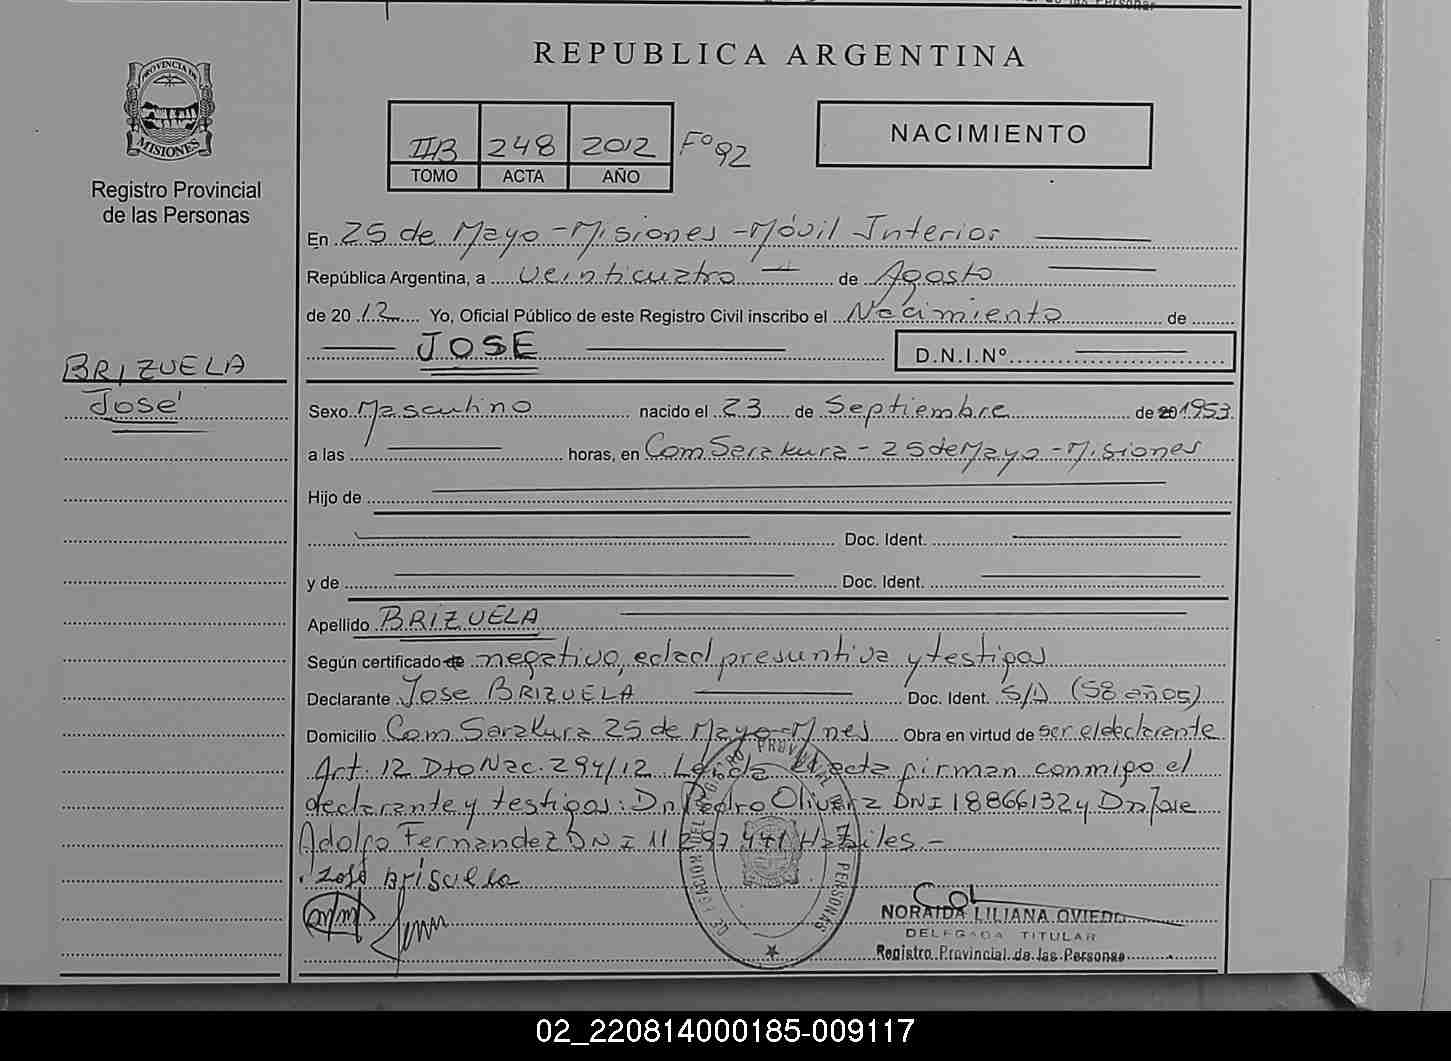 REPUBLICA ARGENTINA
PROVINCIA DE
MISIONES
Registro Provincial
de las Personas
IIB 248 2012 Fº 92
TOMO ACTA AÑO
NACIMIENTO
En 25 de Mayo - Misiones - Móvil Interior
República Argentina, a veinticuatro de Agosto
de 2012 Yo, Oficial Público de este Registro Civil inscribo el Nacimiento de
JOSE D.N.I.Nº
BRIZUELA
José
Sexo Masculino nacido el 23 de Septiembre de 20 1953
a las horas, en Com Sarakura - 25 de Mayo - Misiones
Hijo de
Doc. Ident.
y de Doc. Ident.
Apellido BRIZUELA
Según certificado de negativo, edad presuntiva y testigos
Declarante Jose BRIZUELA Doc. Ident. S/D (58 años)
Domicilio Com Sarakura 25 de Mayo - Mnes Obra en virtud de ser el declarante
Art. 12 Dto Nac. 294/12 Leída el acta firman conmigo el
declarante y testigos: Dn Pedro Olivera DNI 18866132 y Dn Jose
Adolfo Fernandez DNI 11 297 441 Habiles. -
José Brisuela
NORAIDA LILIANA OVIEDO
DELEGADA TITULAR
Registro Provincial de las Personas
02_220814000185-009117